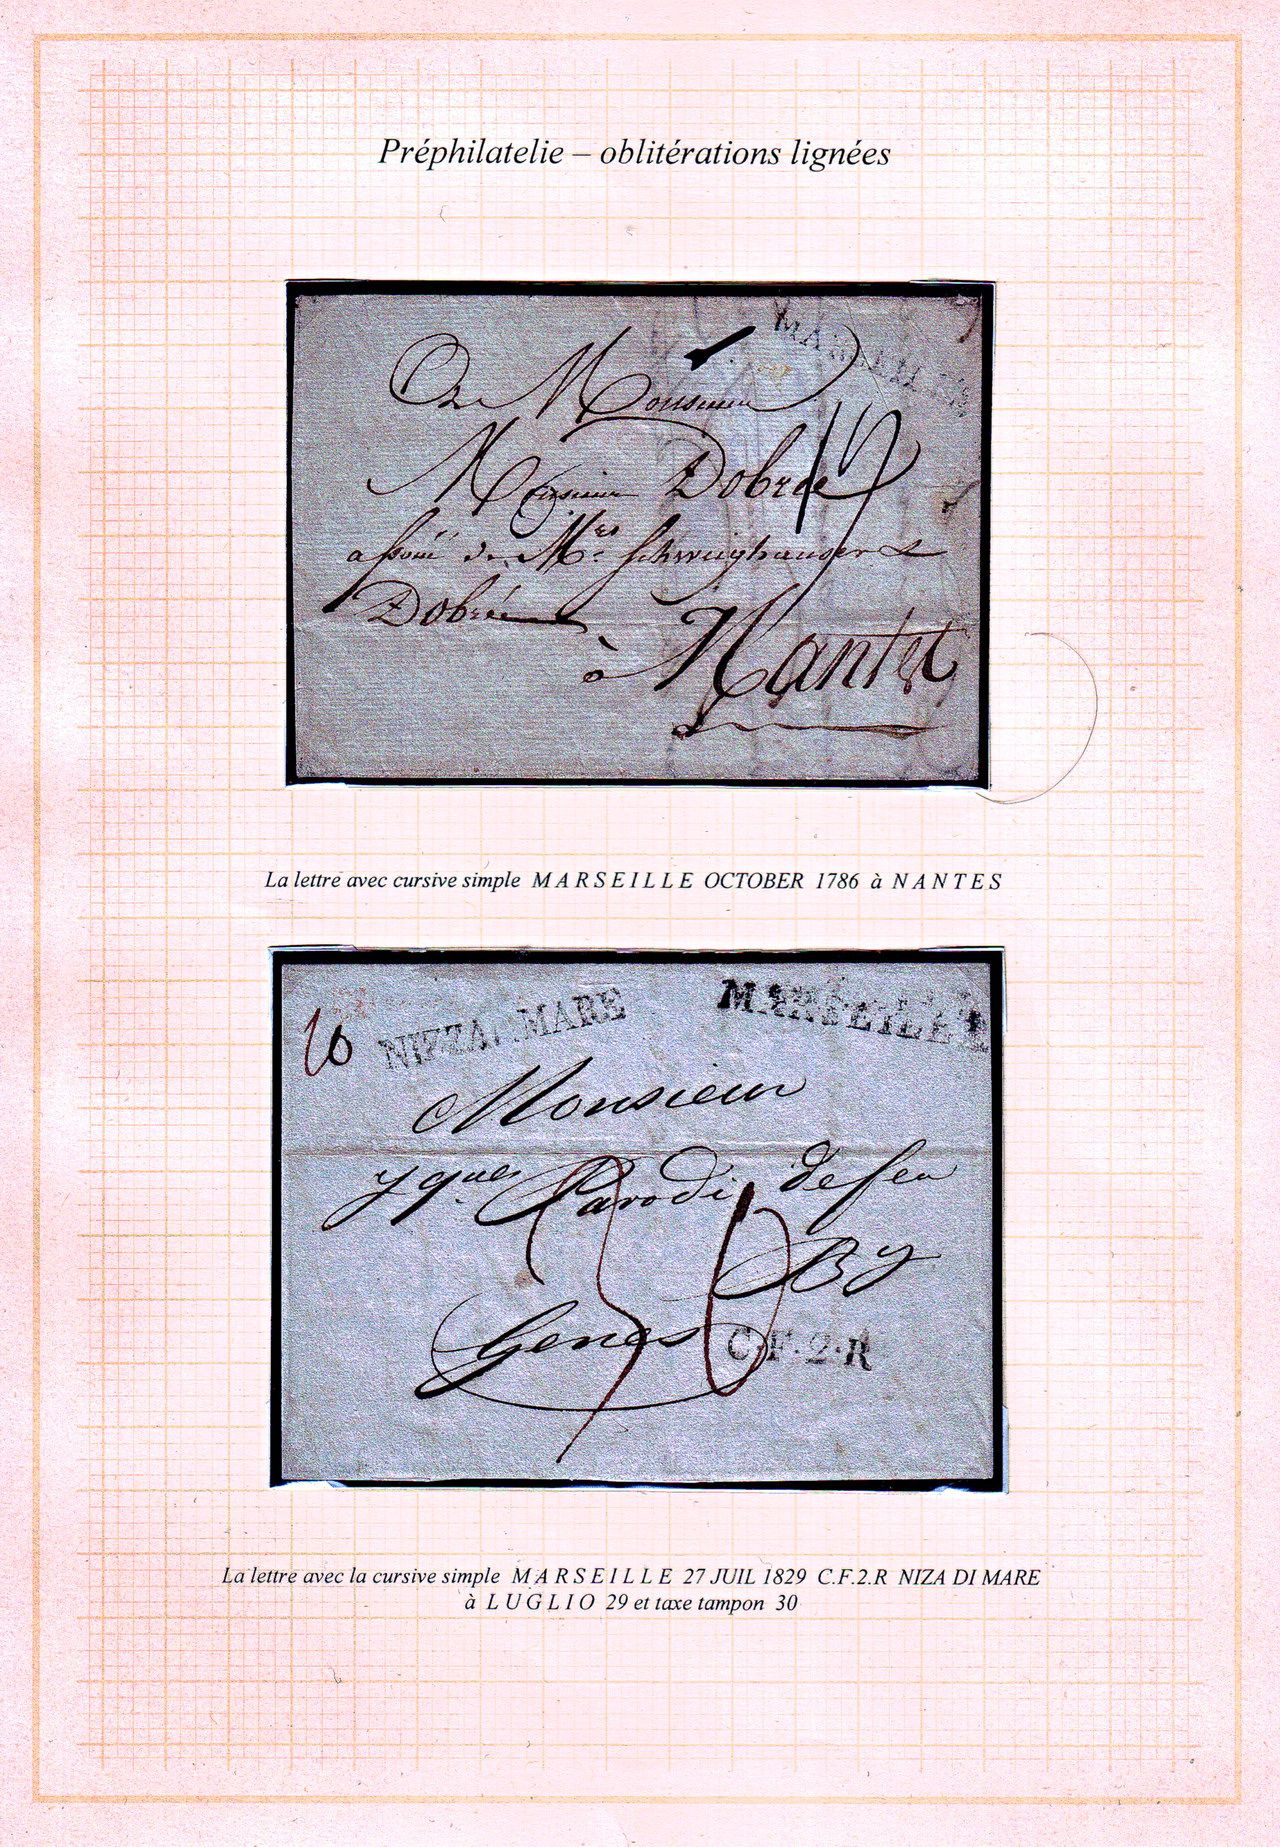 Préphilatelie – oblitérations lignées
MARSEILLE
A Monsieur
Monsieur Dobrée
associé de Mrs. Schweighauser &
Dobrée
à Nantes
La lettre avec cursive simple MARSEILLE OCTOBER 1786 à NANTES
NIZZA MARE MARSEILLE
Monsieur
Jques Parodi de feu
By
Genes
C.F.2.R
La lettre avec la cursive simple MARSEILLE 27 JUIL 1829 C.F.2.R NIZA DI MARE
à LUGLIO 29 et taxe tampon 30